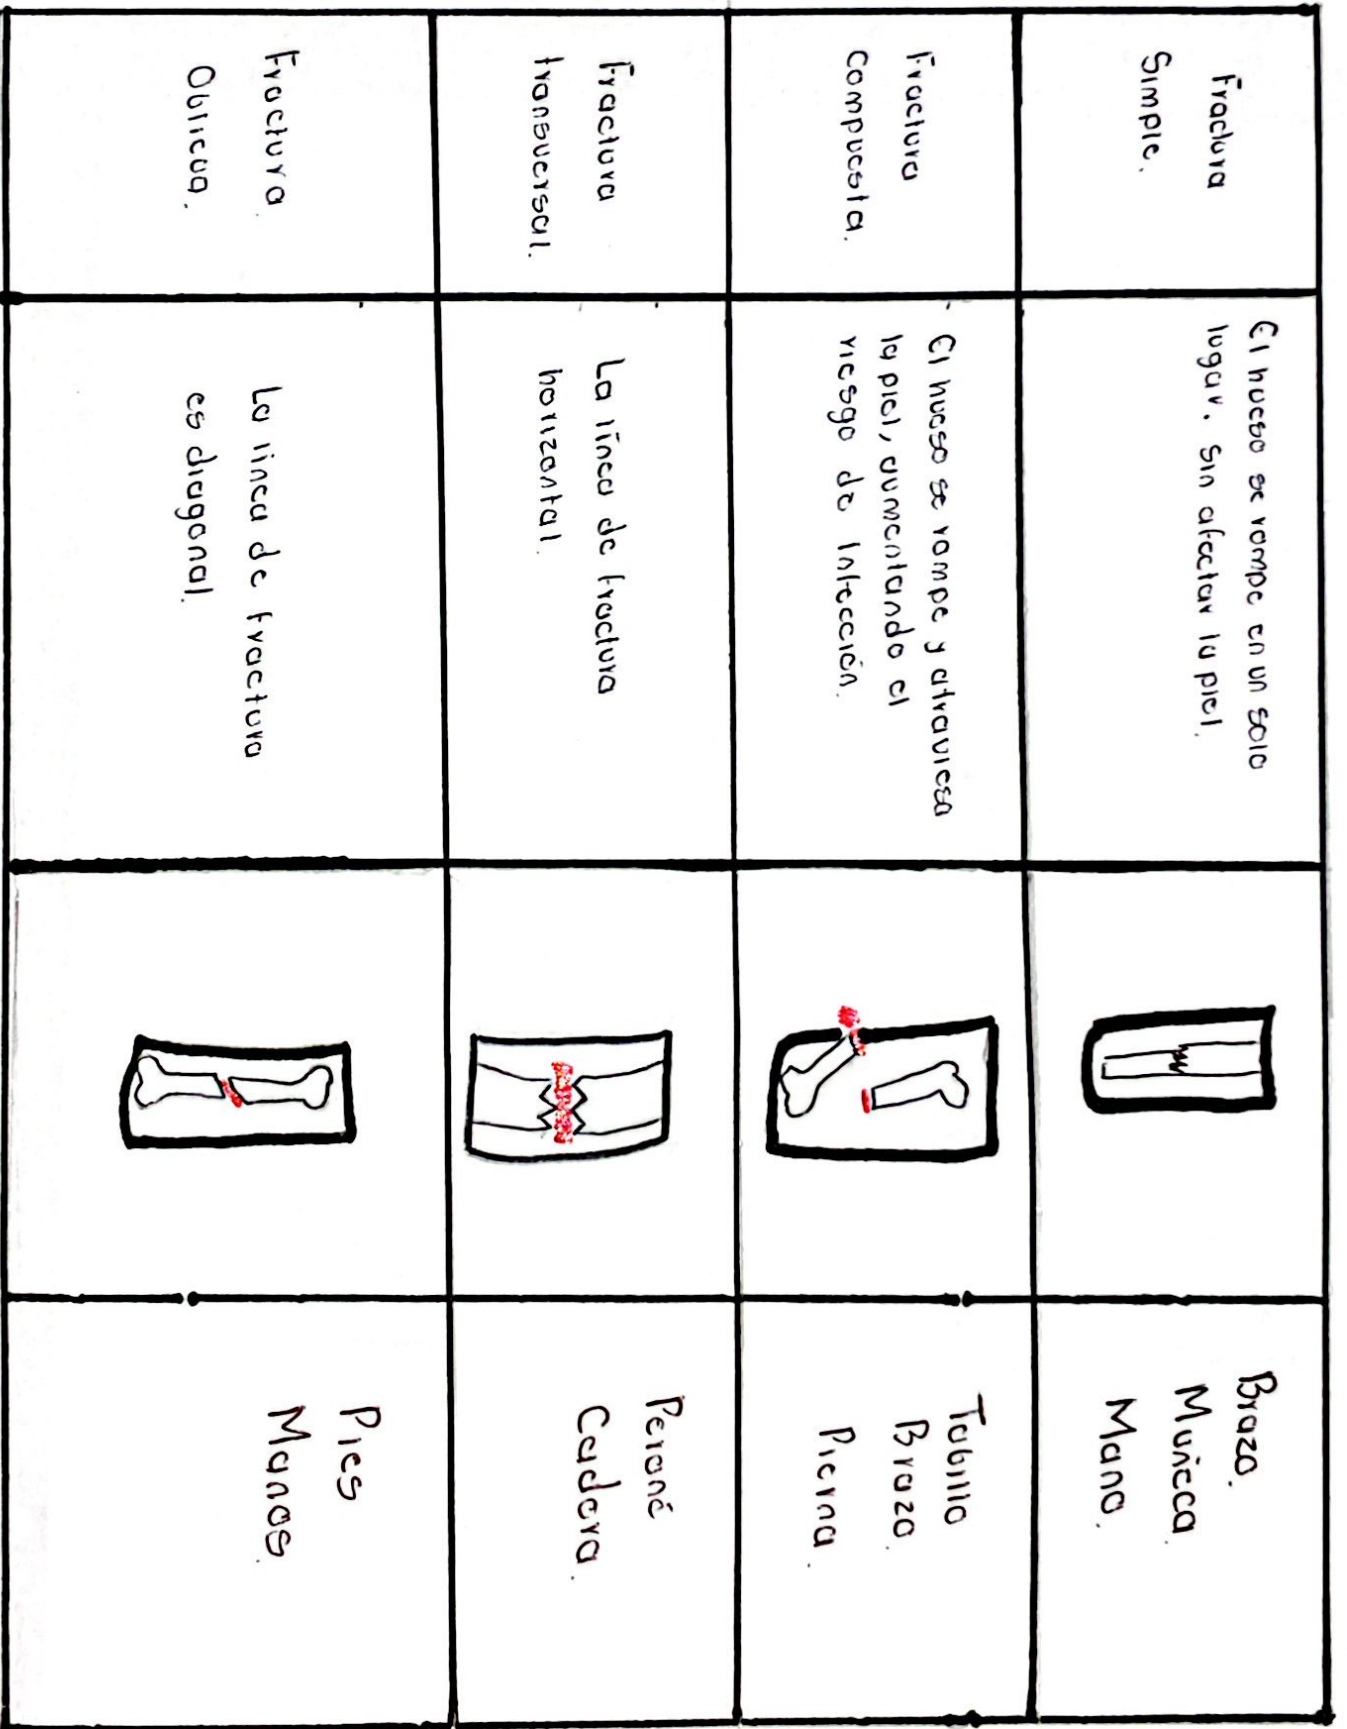 Fractura
Simple.
El hueso se rompe en un solo
lugar. Sin afectar la piel.
Brazo.
Muñeca
Mano.
Fractura
Compuesta.
El hueso se rompe y atraviesa
la piel, aumentando el
riesgo de Infección.
Tobillo
Brazo
Pierna.
Fractura
transversal.
La línea de fractura
horizontal.
Peroné
Cadera.
Fractura.
Oblicua.
La linea de fractura
es diagonal.
Pies
Manos.